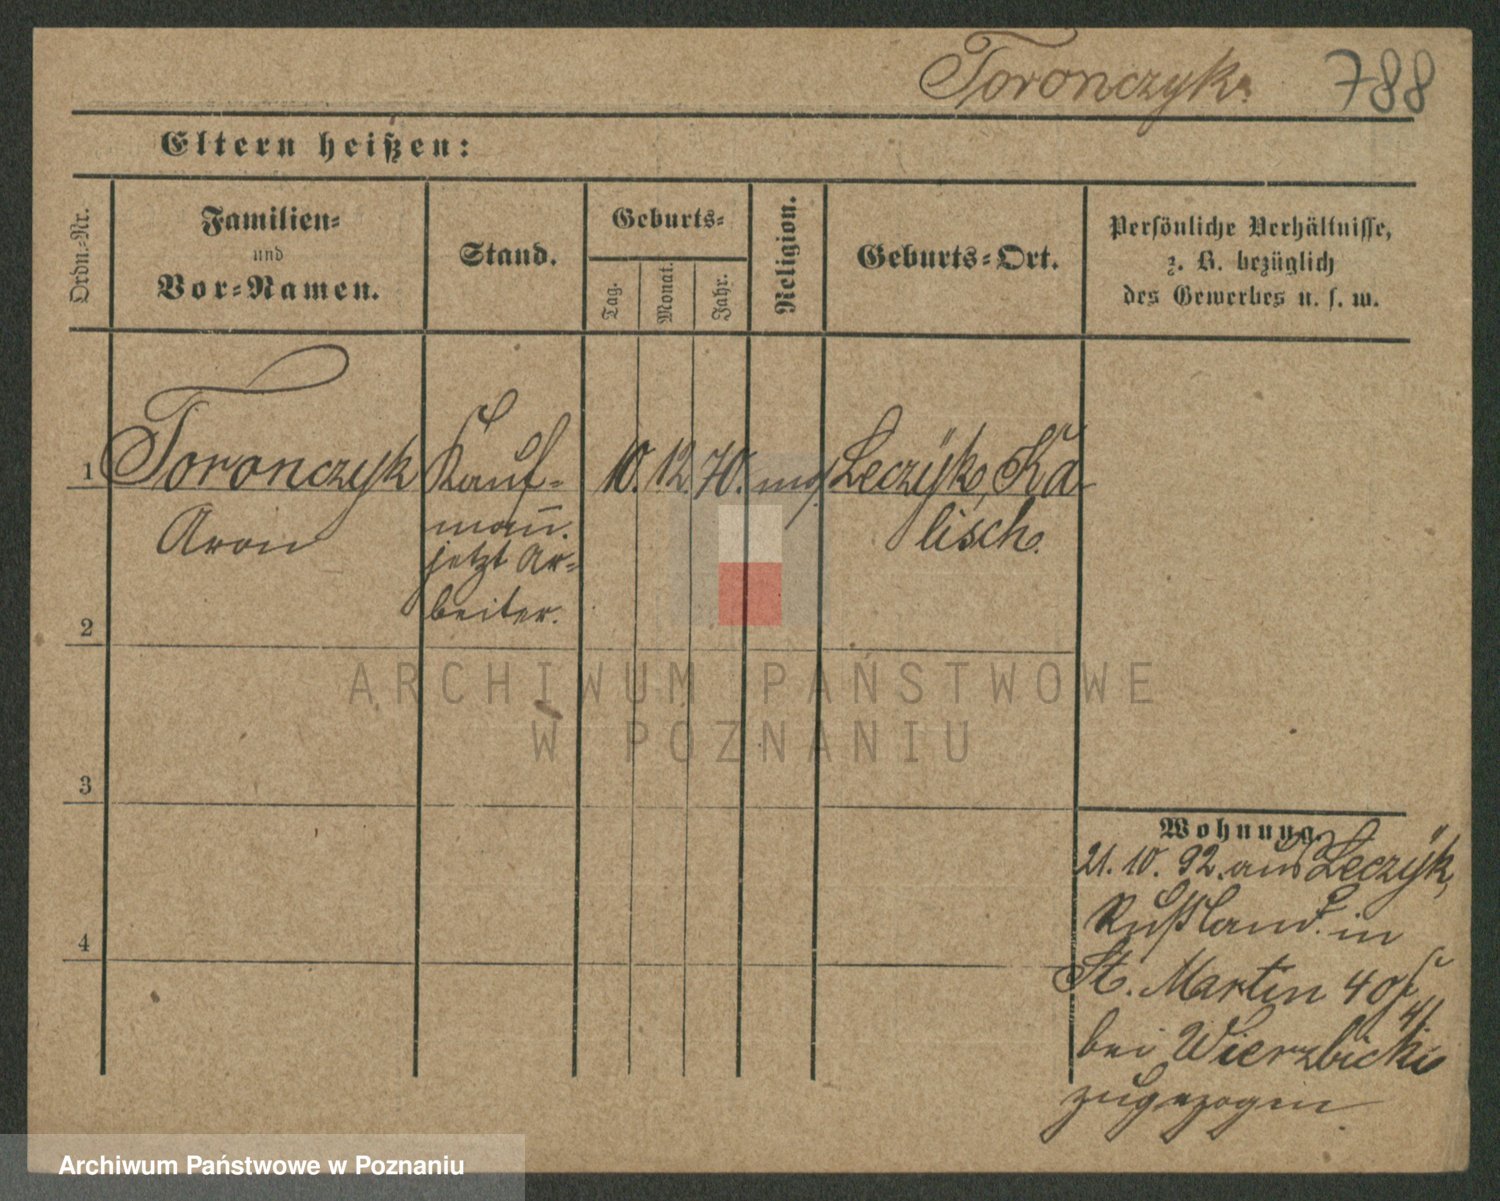 Toronczyk. 788
Eltern heißen:
Ordn.-Nr.
Familien-
und
Vor-Namen.
Stand.
Geburts-
Tag.
Monat.
Jahr.
Religion.
Geburts-Ort.
Persönliche Verhältnisse,
z. B. bezüglich
des Gewerbes u. s. w.
1 Toronczyk Kauf- 10. 12. 70. mos. Leczyk, Ka-
Aron mann. lisch.
jetzt Ar-
beiter.
2
3
4
Wohnung.
21. 10. 92. aus Leczyk,
Rußland in
St. Martin 40
bei Wierzbicki
zugezogen
ARCHIWUM PAŃSTWOWE
W POZNANIU
Archiwum Państwowe w Poznaniu